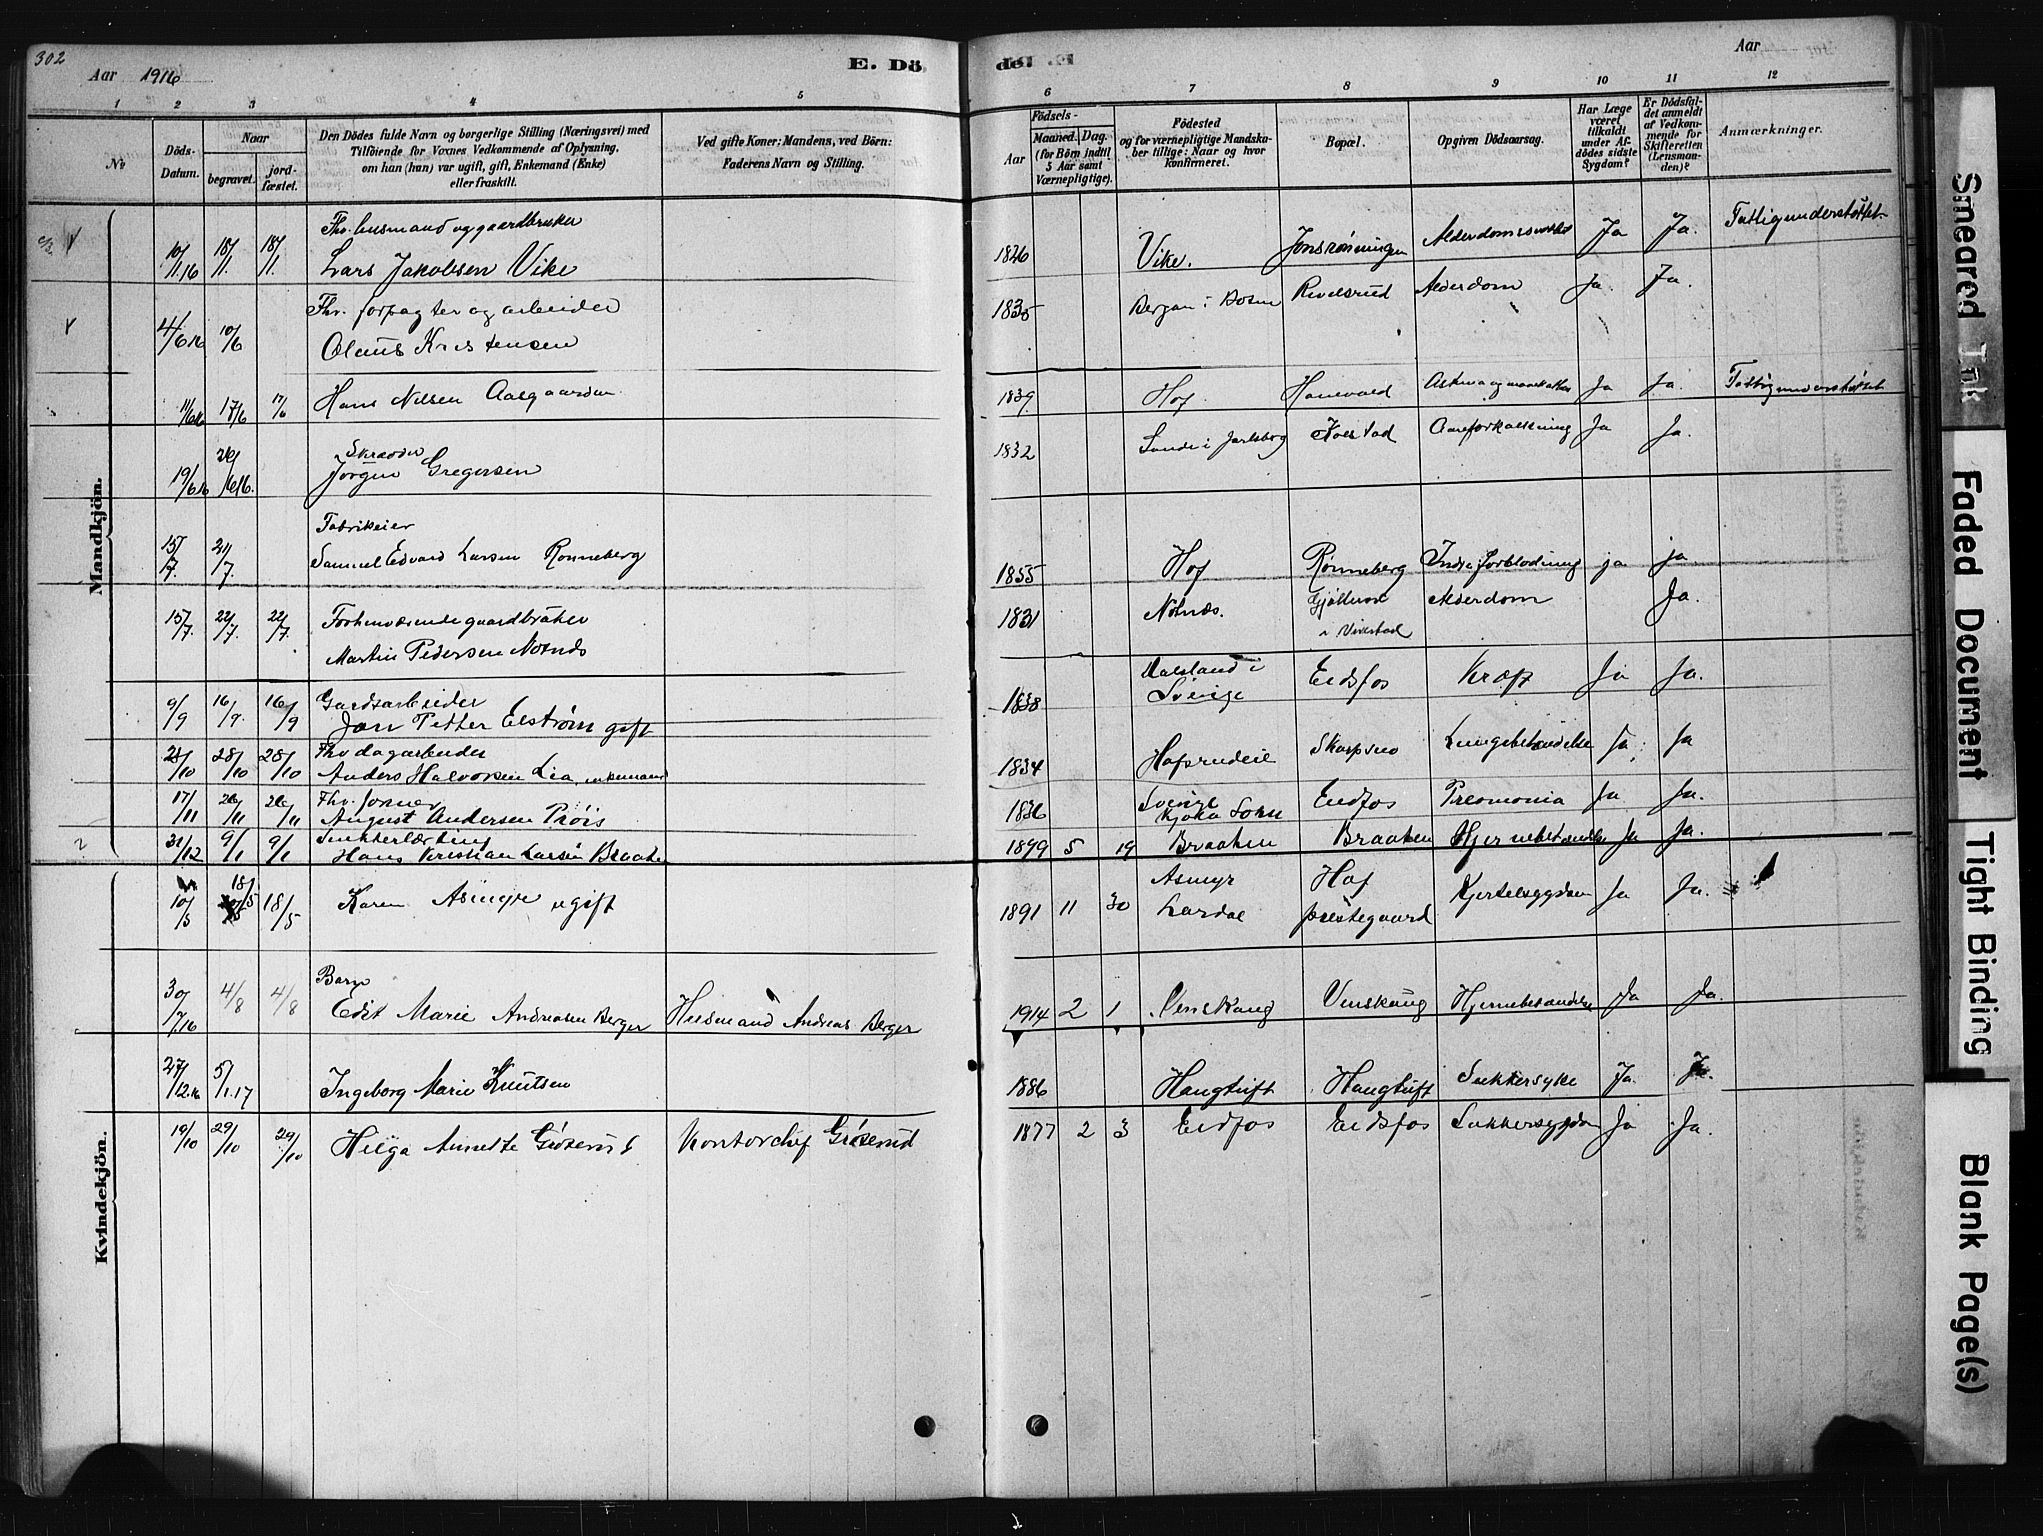 302
Aar 1916
E. Dö
de. E.
Aar
1 2 3 4 5 6 7 8 9 10 11 12
No
Döds-
Datum.
Naar
begravet.
jord-
fæstet.
Den Dödes fulde Navn og borgerlige Stilling (Næringsvei) med
Tilföiende for Voxnes Vedkommende af Oplysning,
om han (hun) var ugift, gift, Enkemand (Enke)
eller fraskilt.
Ved gifte Koner: Mandens, ved Börn:
Faderens Navn og Stilling.
Födsels-
Aar
Maaned. Dag.
(for Börn indtil
5 Aar samt
Værnepligtige).
Födested
og for værnepligtige Mandska-
ber tillige: Naar og hvor
konfirmeret.
Bopæl.
Opgiven Dödsaarsag.
Har Læge
været
tilkaldt
under Af-
dödes sidste
Sygdom?
Er Dödsfal-
det anmeldt
af Vedkom-
mende for
Skifteretten
(Lensman-
den)?
Anmærkninger.
Mandkjön.
Fhv. husmand og gaardbruker
10/1 16 18/1. 18/1. Lars Jakobsen Vike 1826 Vike. Jonsrønningen Ja Ja. Fattigunderstøttet
Fhv. forpagter og arbeider
4/6 16 10/6 Olaus Kristensen Alderdom Ja. Ja.
11/6 16 17/6 17/6 Hans Nilsen Aasgaarden 1839 Hof. Hanevold Ja Ja. Fattigunderstøttet
Skrædder
19/6 16 26/6 16. Jørgen Gregersen 1832 Sande i Jarlsberg Kolstad Aareforkalkning Ja Ja.
Fabrikeier
15/7. 21/7. Samuel Edvard Larsen Rønneberg 1855 Hof Rønneberg Indre forblødning ja ja
Forhenværende gaardbruker
15/7. 22/7. 22/7. Martin Pedersen Notnæs 1831 Notnæs. i Vivestad Alderdom Ja.
Gardsarbeider
9/9 16/9. 16/9 Jan Petter Elstrøm gift 1838 Dalsland i Sverige Eidsfos Kræft Ja Ja.
Fhv dagarbeider
28/10 28/10 Anders Halvorsen Lia, enkemand 1834 Hofsrudeie Skarpsno Lungebetændelse Ja. Ja
Fhv. former
17/11 26/11 26/11 August Andersen Prøis 1836 Sverige Eidsfos Preomonia Ja Ja.
31/12 9/1 9/1 Hans Kristian Larsen Braaten 1899 5 19 Braaten Braaten Hjernebetændelse Ja Ja.
Kvindekjön.
10/5 18/5 18/5 Karen Asmyr ugift 1891 11 30 Asmyr Lardal Hof prestegaard Kjertelsygdom Ja Ja.
Barn
30/7 16 4/8 4/8 Edit Marie Andreasen Berger Husmand Andreas Berger 1914 2 1 Venskaug Venskaug Hjernebetændelse Ja Ja.
27/12.16 5/1.17 Ingeborg Marie Knutsen 1886 Haugtuft Haugtuft Sukkersyke Ja. Ja.
19/10 29/10 29/10 Helga Annette Grøserud Kontorchef Grøserud 1877 2 3 Eidfos Eidsfos Sukkersygdom Ja Ja.
Smeared Ink
Faded Document
Tight Binding
Blank Page(s)